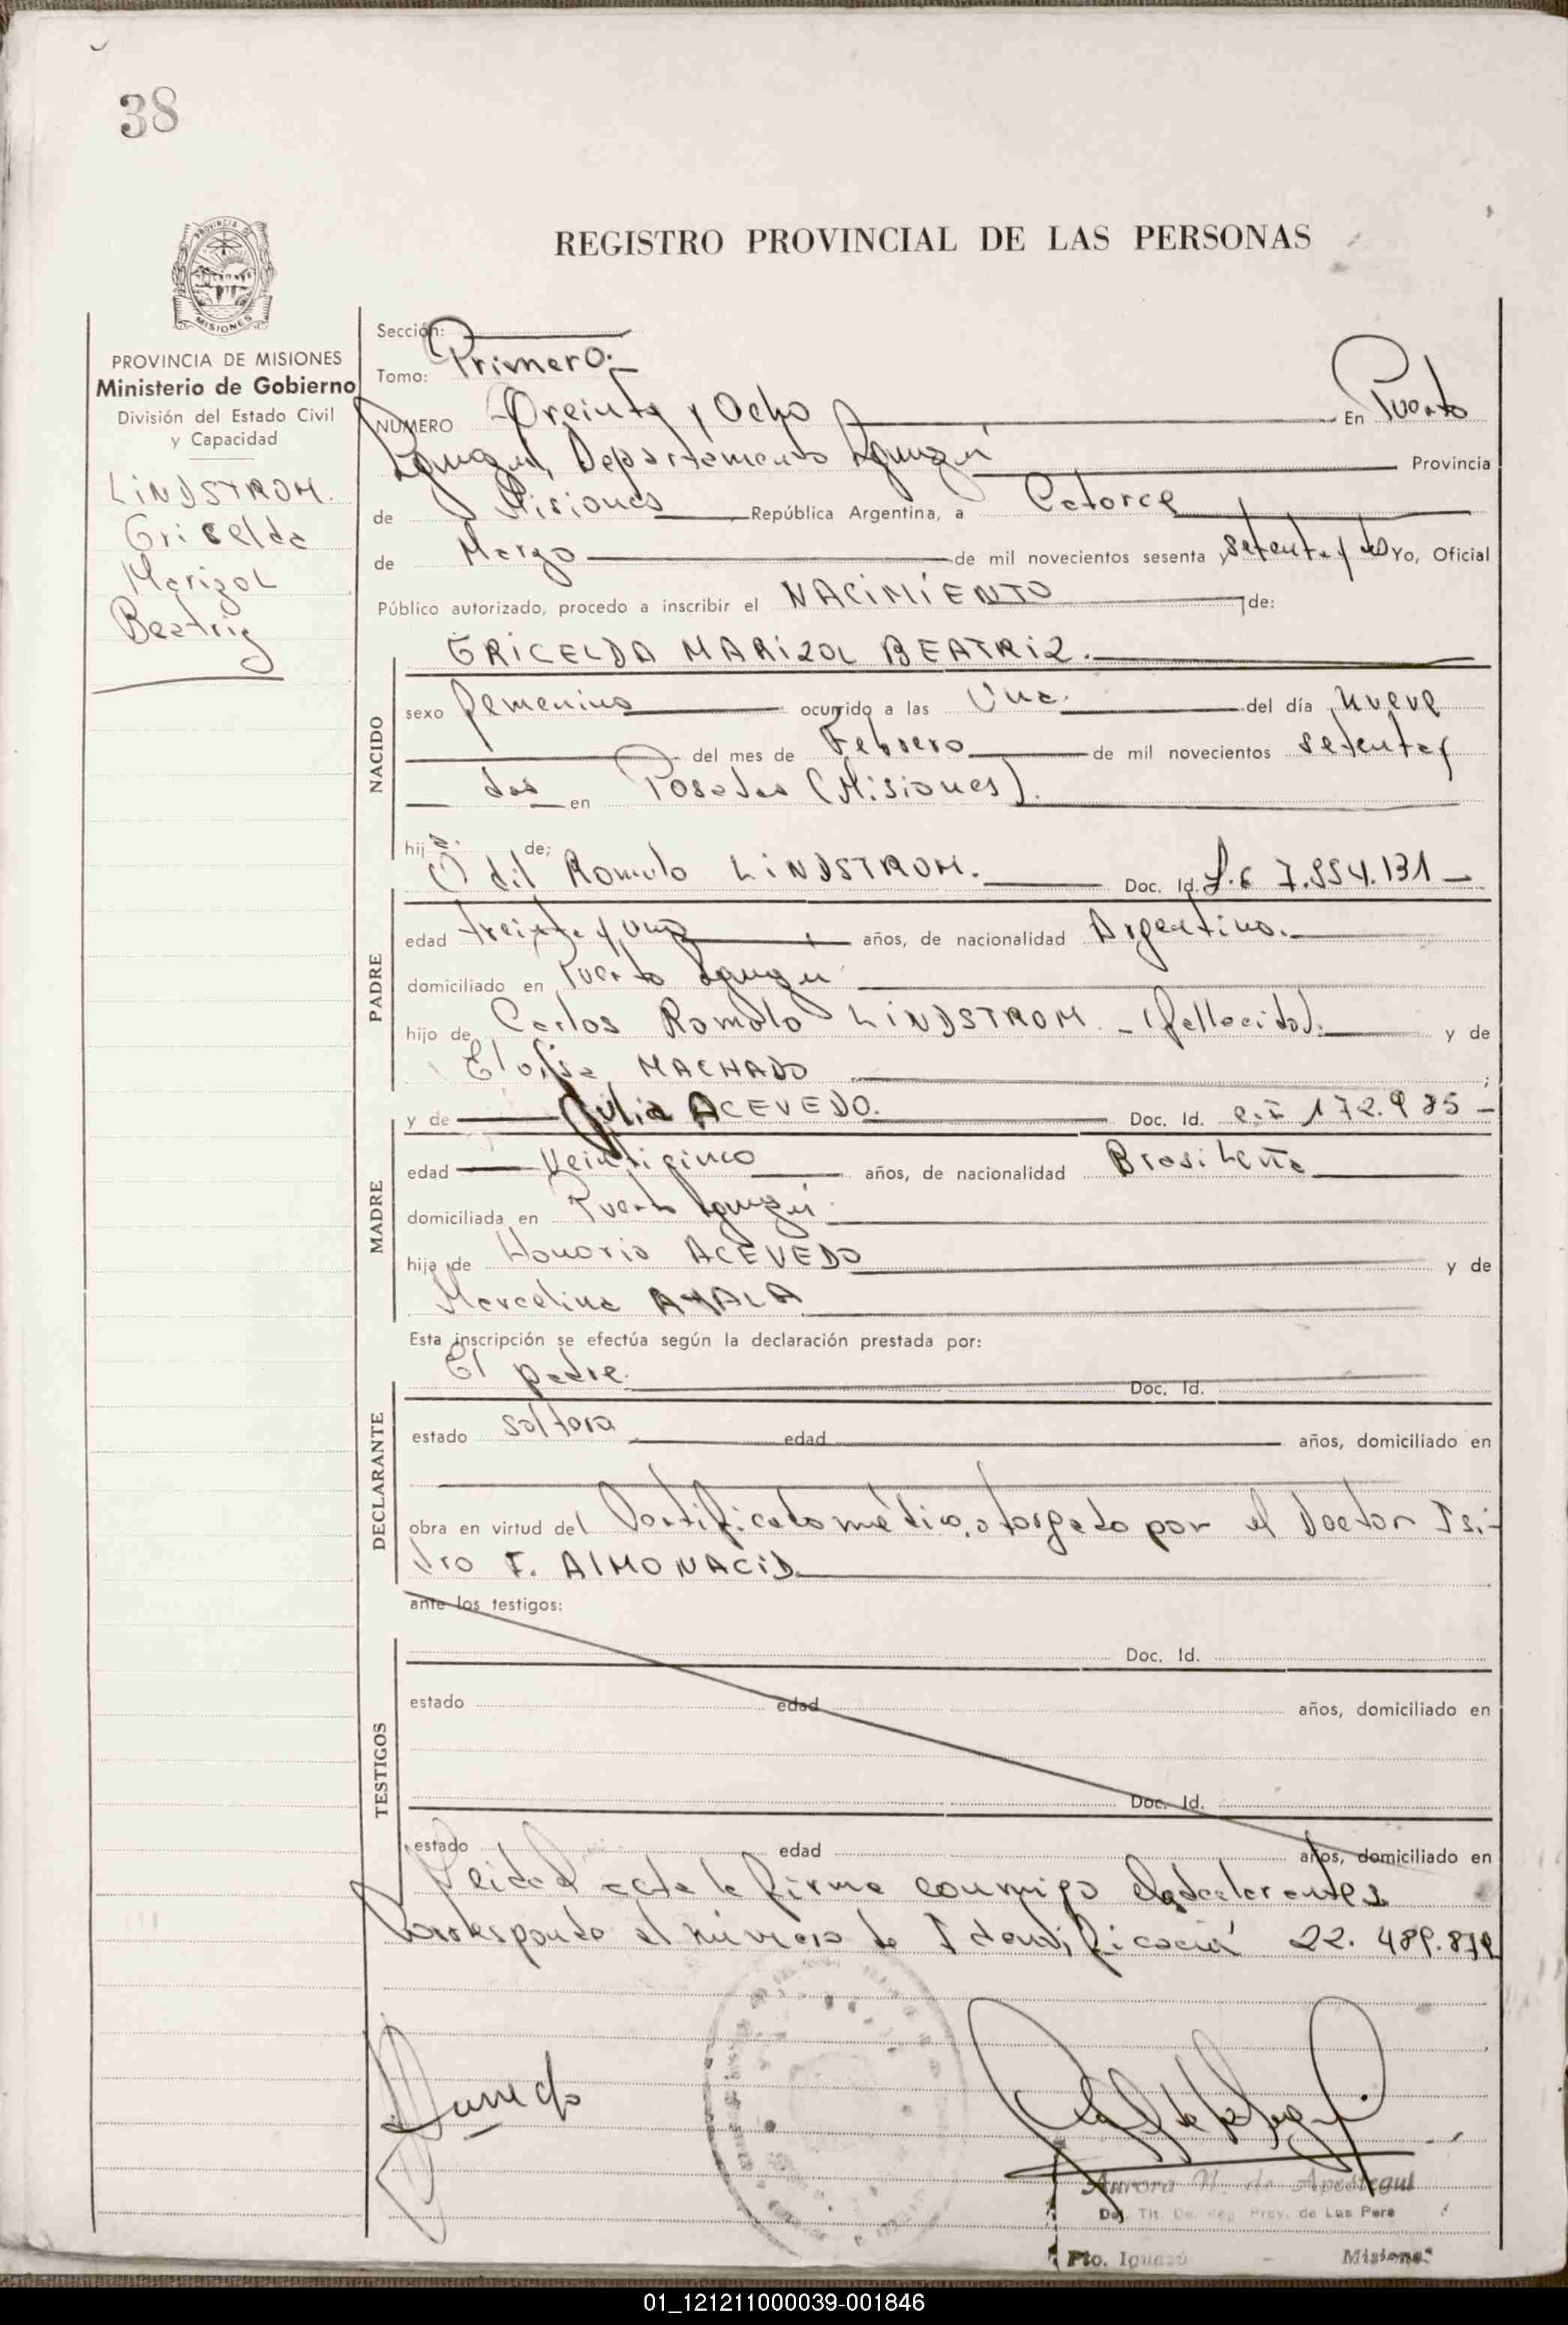 38
PROVINCIA DE
MISIONES
REGISTRO PROVINCIAL DE LAS PERSONAS
PROVINCIA DE MISIONES
Ministerio de Gobierno
División del Estado Civil
y Capacidad
LINDSTROM.
Gricelda
Marizol
Beatriz
Sección:
Tomo: Primero.
NUMERO Treinta y Ocho En Puerto
Iguazú, Departamento Iguazú Provincia
de Misiones República Argentina, a Catorce
de Marzo de mil novecientos sesenta y setenta y dos Yo, Oficial
Público autorizado, procedo a inscribir el NACIMIENTO de:
GRICELDA MARIZOL BEATRIZ.
NACIDO
sexo femenino ocurrido a las Una. del día nueve
del mes de Febrero de mil novecientos setenta y
dos en Posadas (Misiones).
hija. de;
Odil Romulo LINDSTROM. Doc. Id. 7.554.131
PADRE
edad treinta y uno años, de nacionalidad Argentino.
domiciliado en Puerto Iguazú
hijo de Carlos Romulo LINDSTROM. - (fallecido). y de
MACHADO ;
y de Julia ACEVEDO. Doc. Id. 172.985
MADRE
edad Veinticinco años, de nacionalidad Brasileña
domiciliada en Puerto Iguazú
hija de Honorio ACEVEDO y de
Marcelina AYALA
Esta inscripción se efectúa según la declaración prestada por:
El padre. Doc. Id.
DECLARANTE
estado soltera edad años, domiciliado en
obra en virtud del Certificado médico, otorgado por el Doctor Isi-
dro F. ALMONACID
ante los testigos:
Doc. Id.
TESTIGOS
estado edad años, domiciliado en
Doc. Id.
estado edad años, domiciliado en
Leida el acta la firma conmigo
Corresponde el número de Identificación 22. 489.872
Aurora N. de Apostegui
Del. Tit. De. Reg. Prov. de Las Pers
Pto. Iguazú - Misiones
01_121211000039-001846